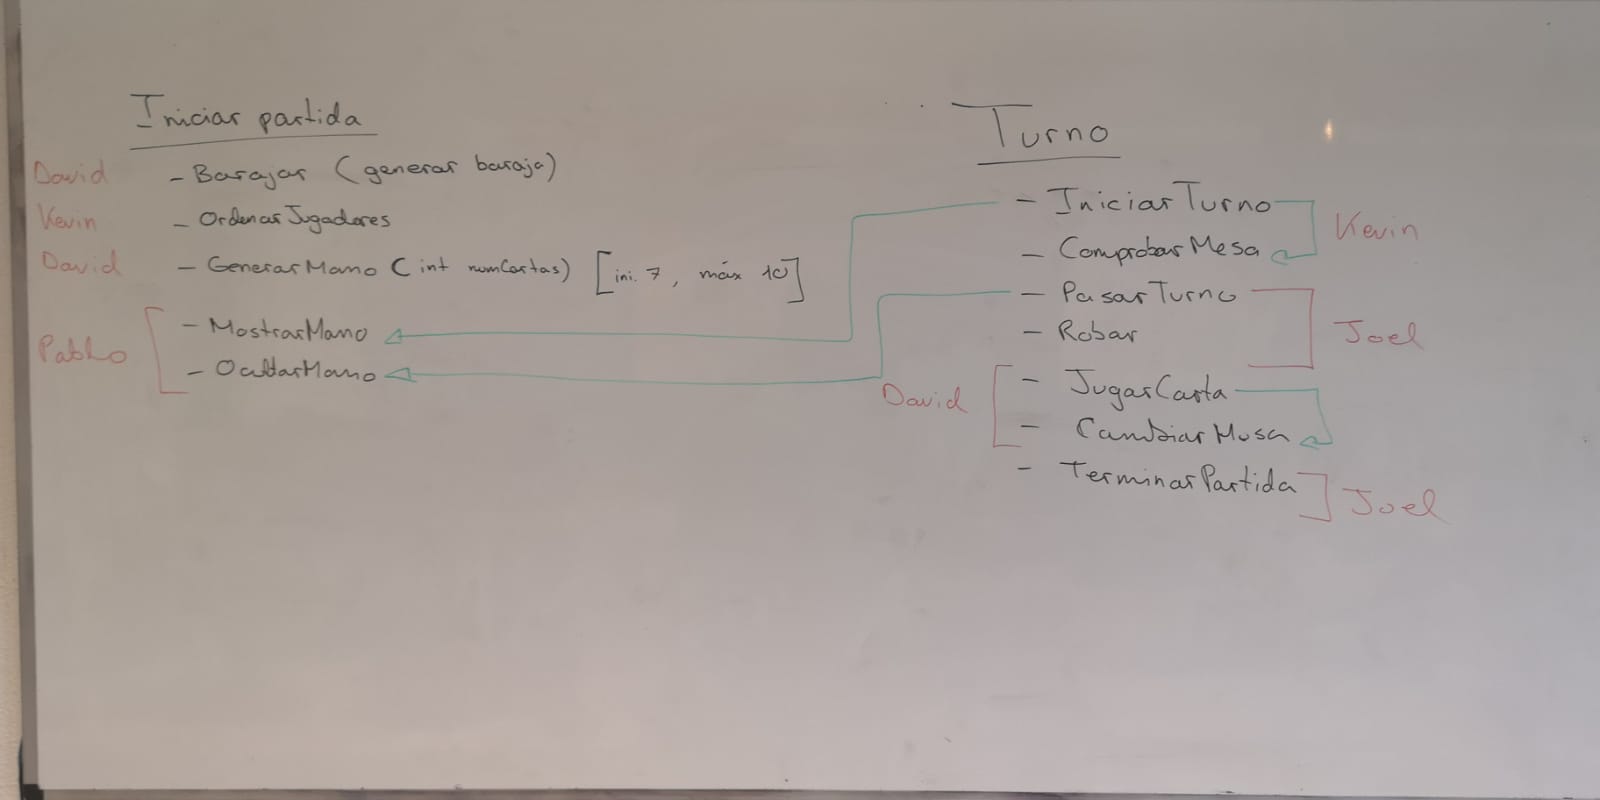 Iniciar partida
David - Barajar (generar baraja)
Kevin - OrdenarJugadores
David - GenerarMano (int numCartas) [ini. 7, máx 10]
Pablo
- MostrarMano
- OcultarMano
Turno
- IniciarTurno
Kevin
- ComprobarMesa
- PasarTurno
Joel
- Robar
David
- JugarCarta
- CambiarMesa
- TerminarPartida
Joel